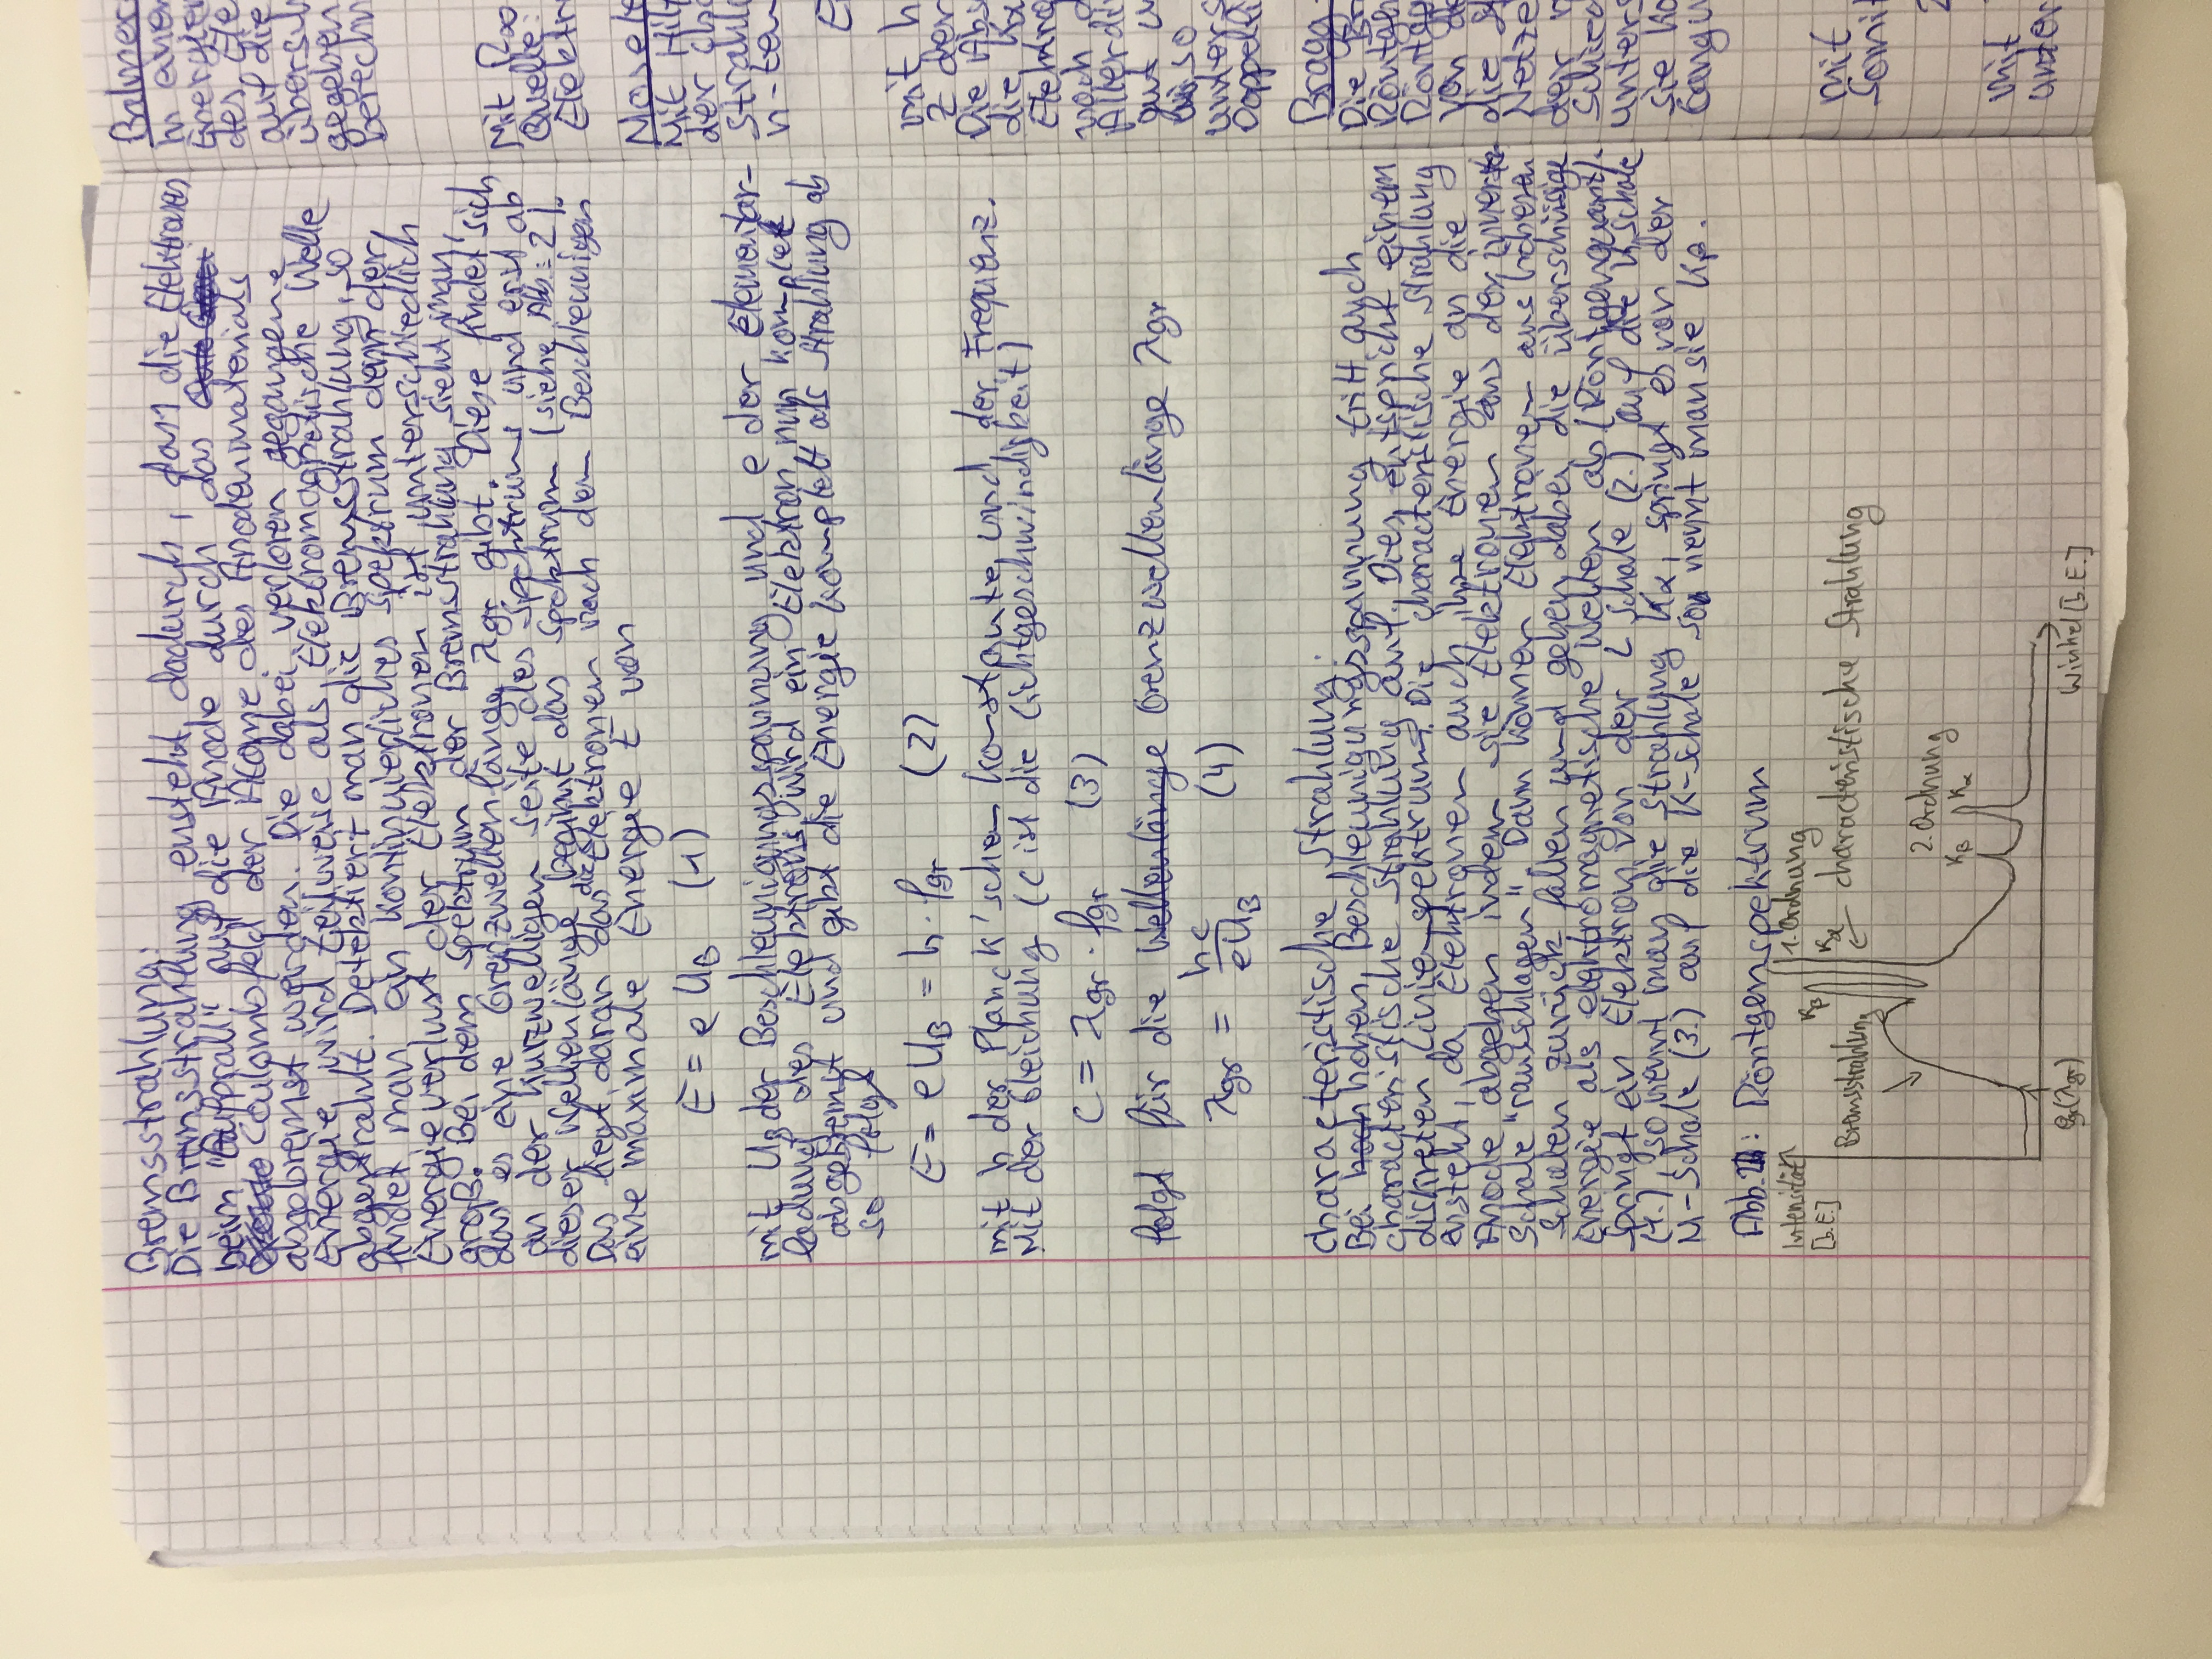 Bremsstrahlung:
Die Bremsstrahlung ensteht dadurch, dass die Elektronen
beim "Aufprall" auf die Anode durch das
Coulombfeld der Atome des Anodenmaterials
abgebremst werden. Die dabei verloren gegangene
Energie wird teilweise als Elektromagnetische Welle
abgestrahlt. Detektiert man die Bremsstrahlung, so
findet man ein kontinuierliches Spektrum denn der
Energieverlust der Elektronen ist unterschiedlich
groß. Bei dem Spektrum der Bremsstrahlung sieht man,
das es eine Grenzwellenlänge λgr gibt. Diese findet sich
an der kurzwelligen Seite des Spektrums und erst ab
dieser Wellenlänge beginnt das Spektrum (siehe Abb. 2).
Das liegt daran das die Elektronen nach dem Beschleunigen
eine maximale Energie E von
E = e UB (1)
mit UB der Beschleunigungsspannung und e der Elementar-
ladung des Elektrons wird ein Elektron nun komplet
abgebremst und gibt die Energie komplett als Strahlung ab
so folgt
E = e UB = h · fgr (2)
mit h der Planck'schen Konstante und der Frequenz.
Mit der Gleichung (c ist die Lichtgeschwindigkeit)
c = λgr · fgr (3)
folgt für die Wellenlänge Grenzwellenlänge λgr
λgr = hc / eUB (4)
characteristische Strahlung:
Bei hoch hohen Beschleunigungsspannung tritt auch
characteristische Strahlung auf. Dies entspricht einem
diskreten Linienspektrum. Die characteristische Strahlung
ensteht, da Elektronen auch ihre Energie an die
Anode abgeben indem sie Elektronen aus der innersten
Schale "rausschlagen". Dann können Elektronen aus höheren
Schalen zurück fallen und geben dabei die überschüsige
Energie als elektromagnetische Wellen ab (Röntgenquant).
Springt ein Elektron von der L Schale (2.) auf die K Schale
(1.), so nennt man die Strahlung Kα, springt es von der
M-Schale (3.) auf die K-Schale so nennt man sie Kβ.
Abb. 2: Röntgenspektrum
Intensität
[b.E.]
1. Ordnung
Kβ
Kα
characteristische Strahlung
Bremsstrahlung
2. Ordnung
Kβ
Kα
(λgr)
Winkel [b.E.]
Balmer
in einer
Energie
des Ele
auf die
übersch
gegeben
berechn
Mit R∞
Quelle:
Elektr
Mosele
Mit Hilf
der cha
strahl
n-ten
E
mit h
Z der
Die Abs
die Kα
Elektro
noch
Allerdi
gut
so
unters
Doppelli
Bragg-
Die Br
Röntgen
Röntge
von de
die
Netze
der
Schied
unters
sie
Gangu
mit
Somit
2
mit
unter